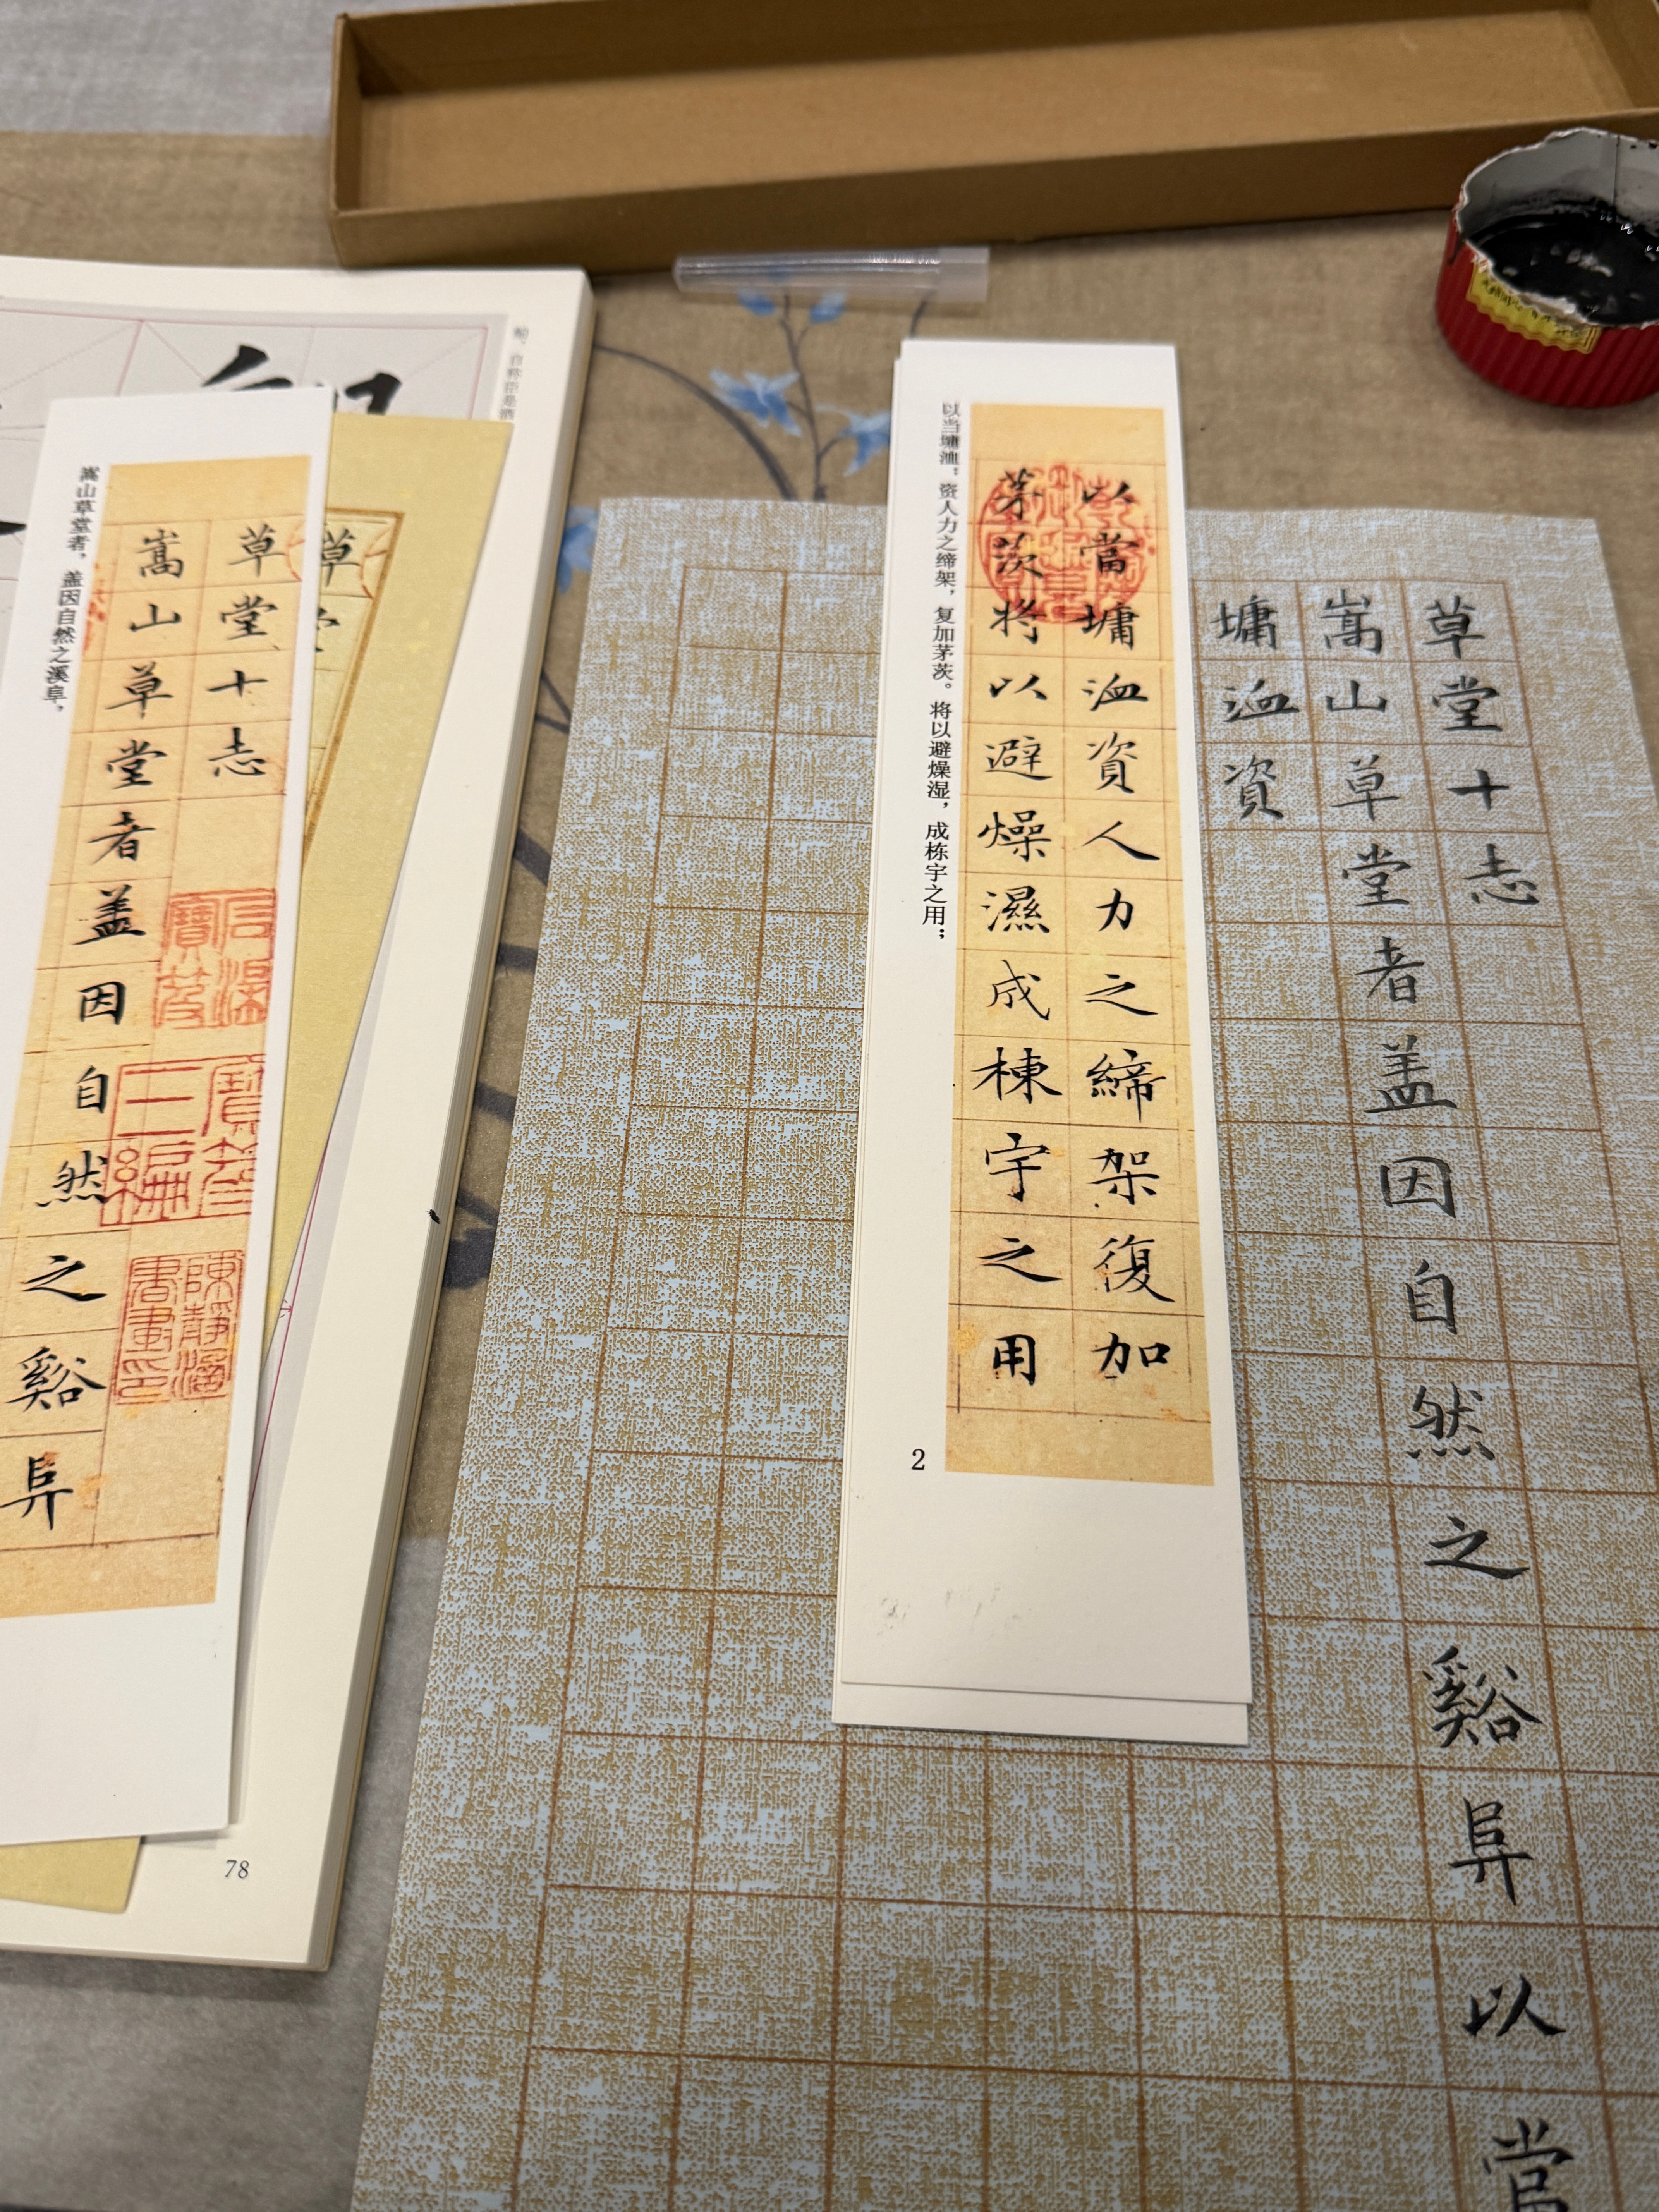 草堂十志
嵩山草堂者盖因自然之谿阜以當
墉洫資
以當墉洫資人力之締架復加
茅茨将以避燥濕成棟宇之用
以当墉洫；资人力之缔架，复加茅茨。将以避燥湿，成栋宇之用；
2
草堂十志
嵩山草堂者盖因自然之谿阜
嵩山草堂者，盖因自然之溪阜，
草
78